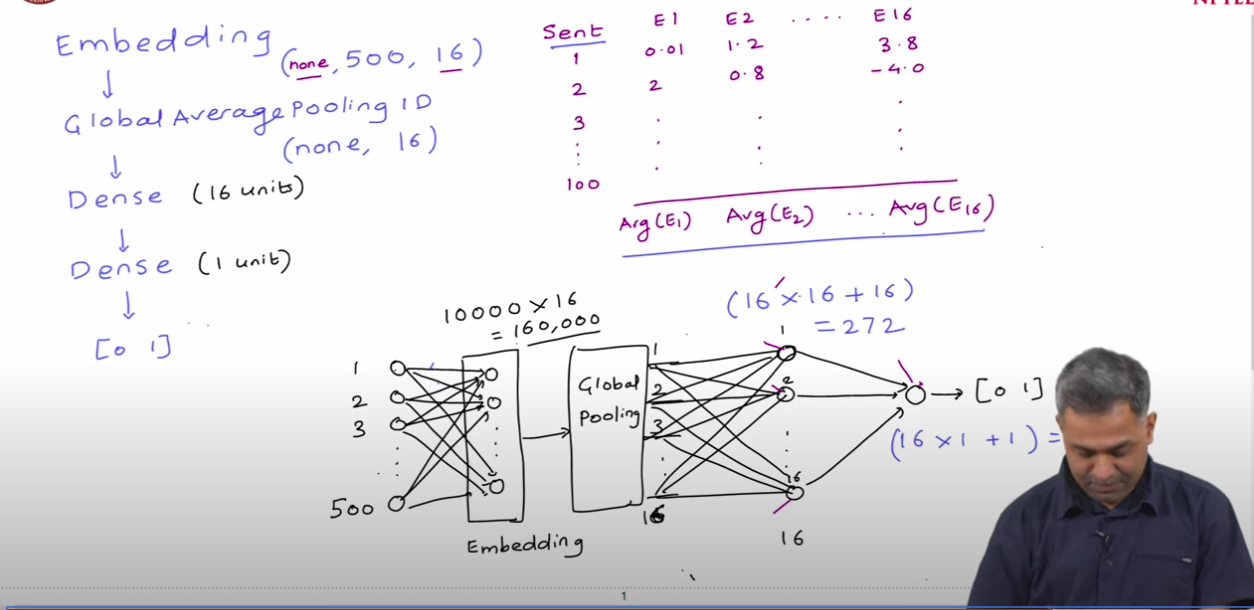 NPTEL
Embedding
(none, 500, 16)
↓
Global Average Pooling 1D
(none, 16)
↓
Dense (16 units)
↓
Dense (1 unit)
↓
[0 1]
Sent E1 E2 .... E16
1 0.01 1.2 3.8
2 2 0.8 -4.0
3 . . .
: . : .
100 . . .
Arg(E1) Avg(E2) ... Avg(E16)
10000 × 16
= 160,000
(16 × 16 + 16)
= 272
1
2
3
500
Embedding
Global
Pooling
1
2
3
16
1
2
16
16
→ [0 1]
(16 × 1 + 1) =
1